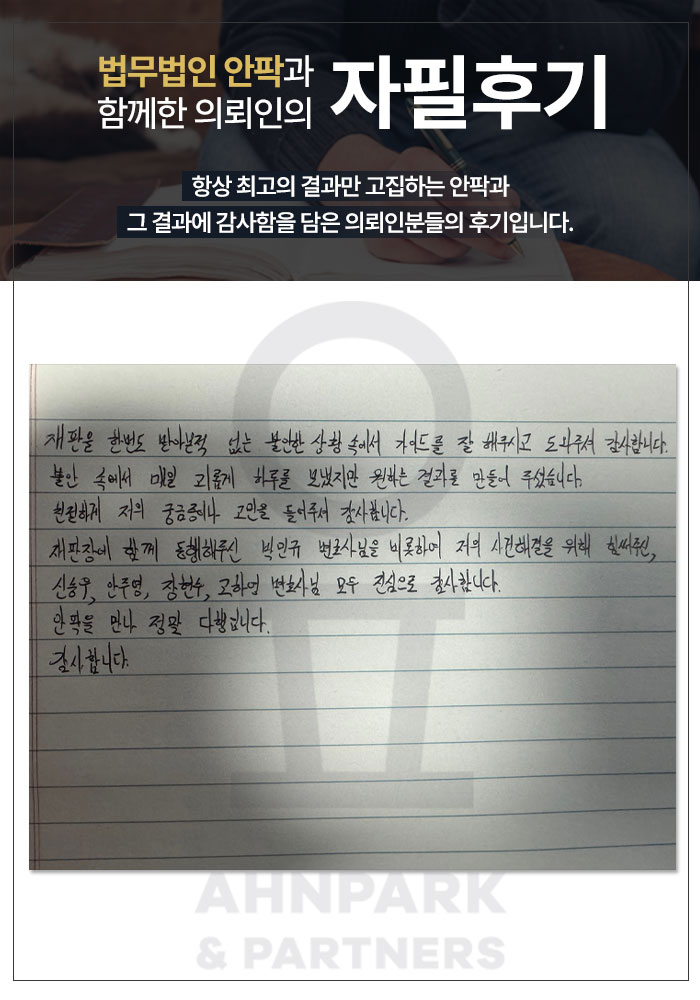 법무법인 안팍과
함께한 의뢰인의
자필후기
항상 최고의 결과만 고집하는 안팍과
그 결과에 감사함을 담은 의뢰인분들의 후기입니다.
재판을 한번도 받아본적 없는 불안한 상황 속에서 가이드를 잘 해주시고 도와주셔 감사합니다.
불안 속에서 매일 괴롭게 하루를 보냈지만 원하는 결과로 만들어 주셨습니다.
친절하게 저의 궁금증이나 고민을 들어주셔 감사합니다.
재판장에 함께 동행해주신 박인규 변호사님을 비롯하여 저의 사건해결을 위해 힘써주신,
신승우, 안주영, 장현수, 고하연 변호사님 모두 진심으로 감사합니다.
안팍을 만나 정말 다행입니다.
감사합니다.
AHNPARK
& PARTNERS